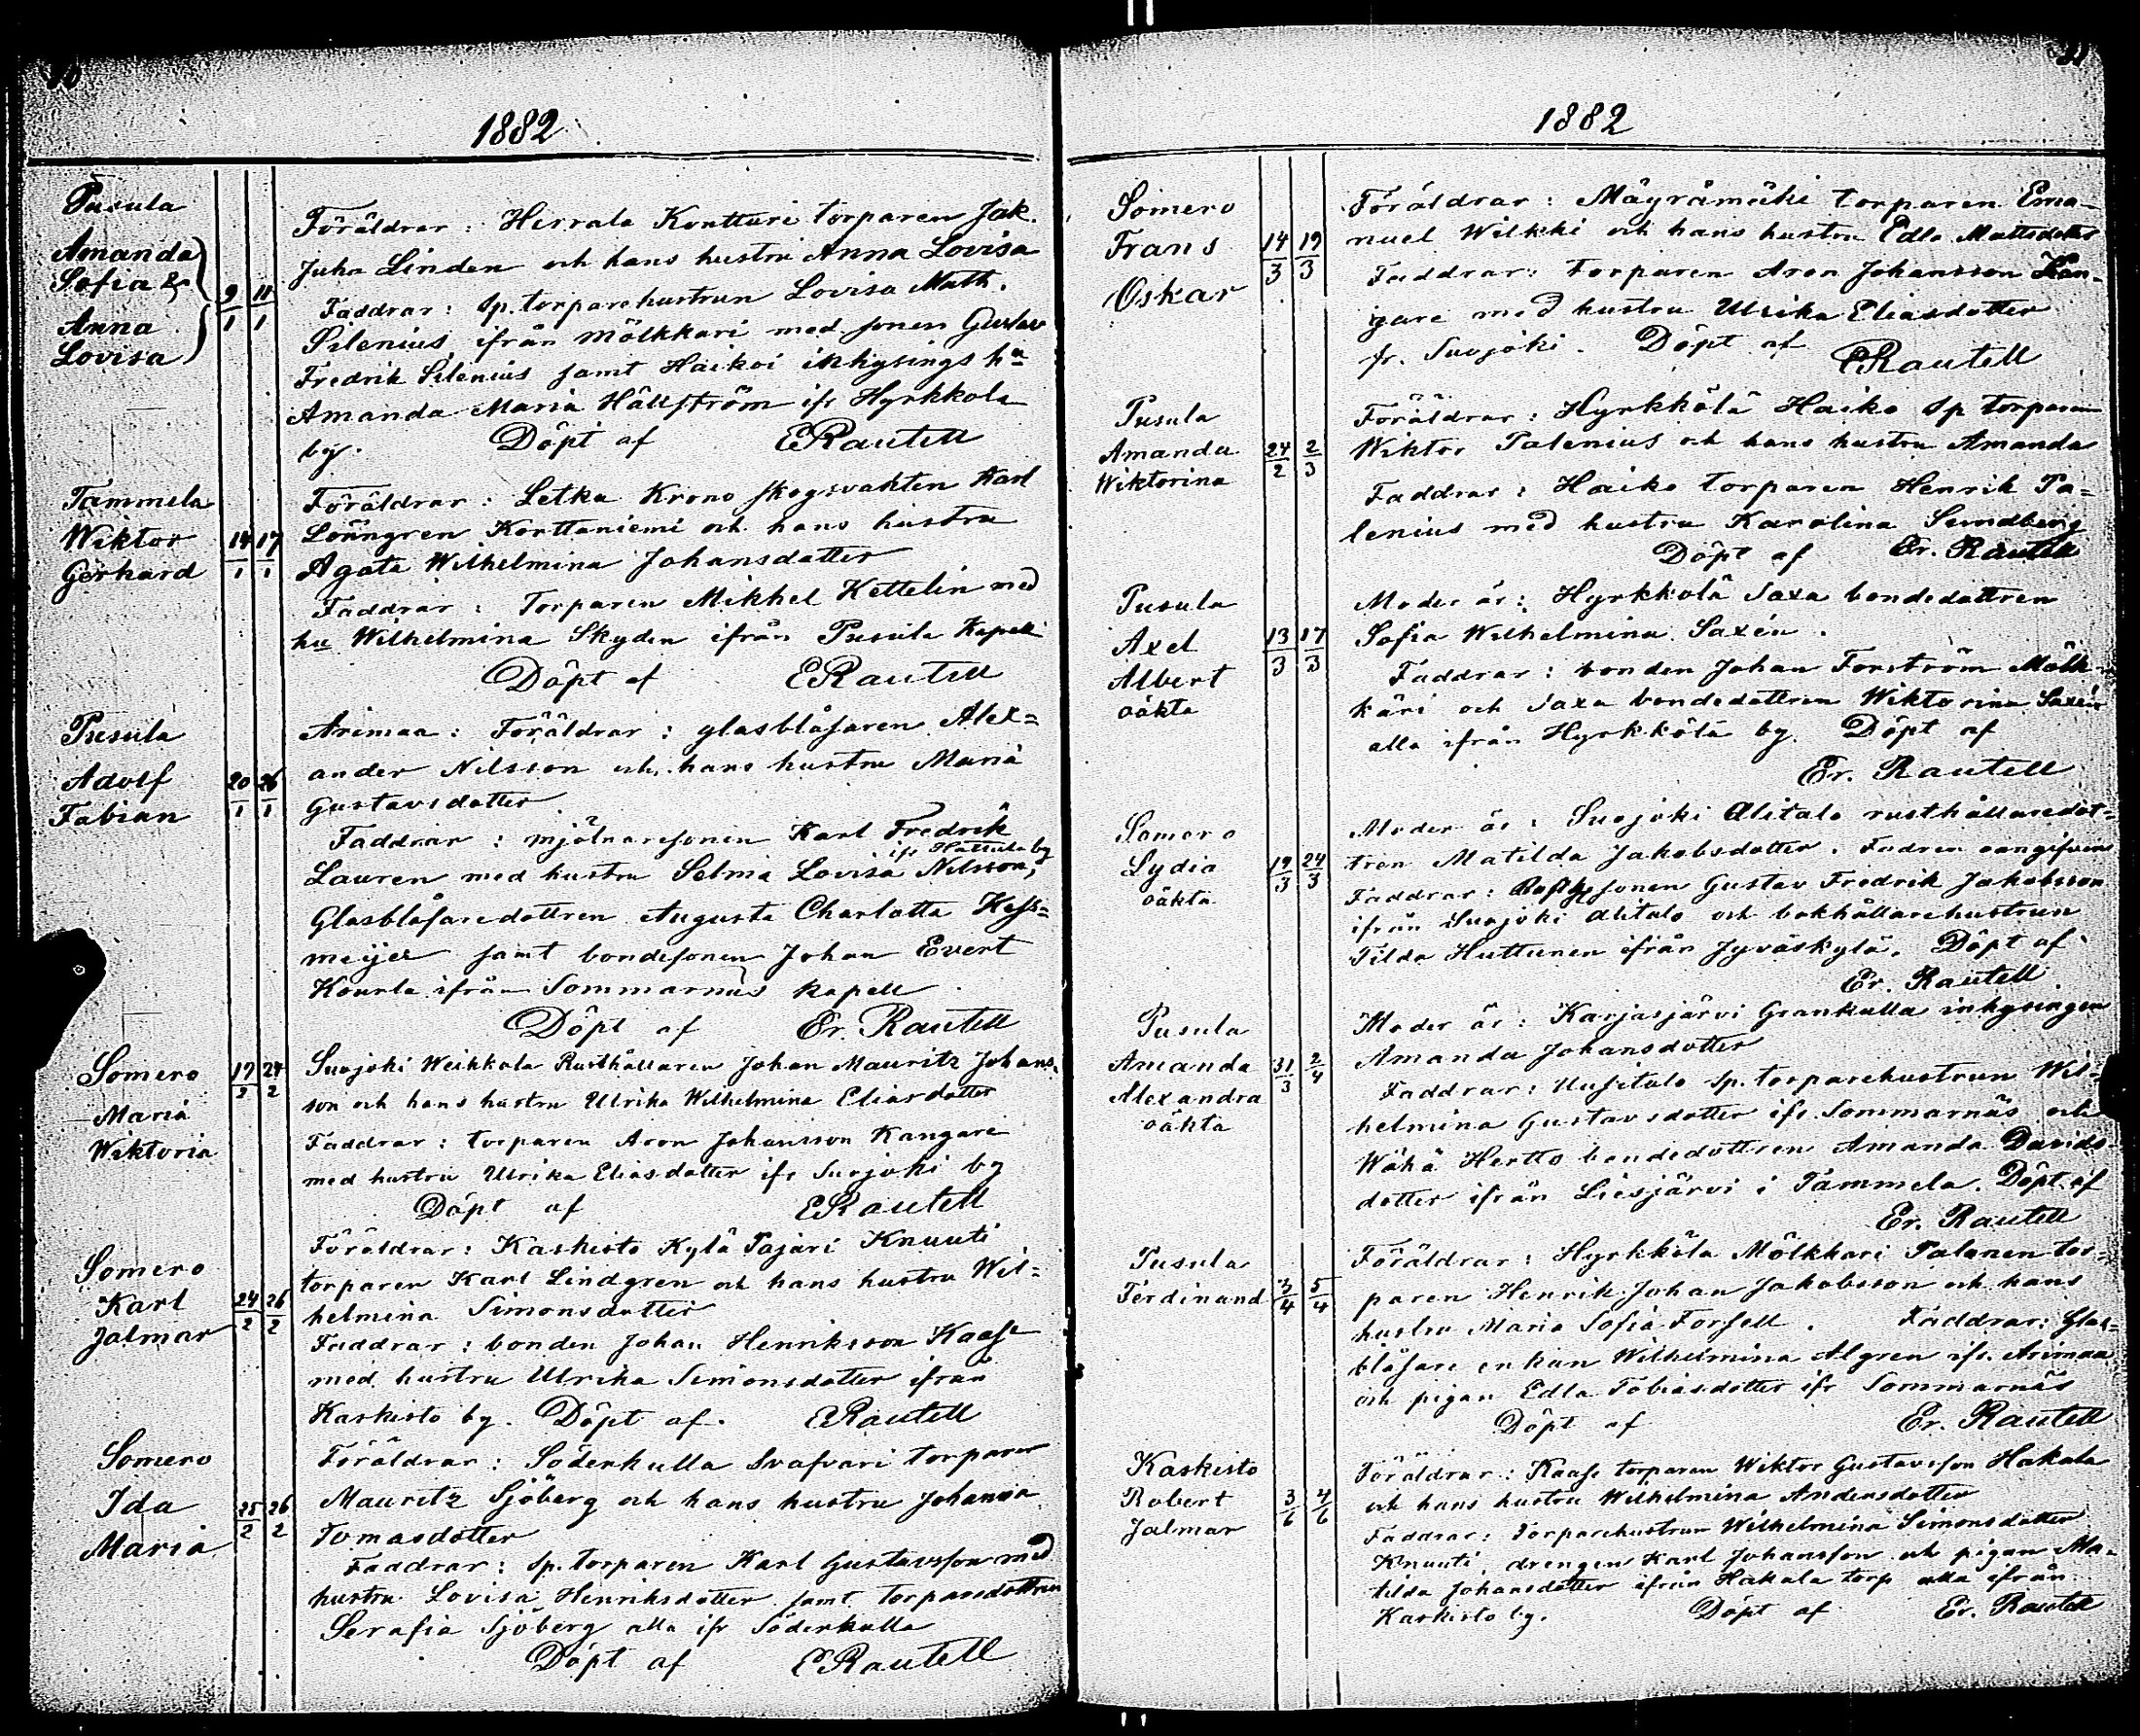 1882
Pusula
Amanda
Sofia &
Anna
Lovisa
9/1 11/1
Föräldrar: Herrala Kontturi torparen Jak.
Juho Linden och hans hustru Anna Lovisa
Faddrar: Sp. torparehustrun Lovisa Math.
Silenius ifrån Mölkkäri med sonen Gustav
Fredrik Silenius samt Haikoi inhysings
Amanda Maria Hällström ifr Hyrkkola
by. Döpt af ERautell
Tammela
Wiktor
Gerhard
14/1 17/1
Föräldrar: Letku Krono skogsvakten Karl
Lönngren Korttaniemi och hans hustru
Agata Wilhelmina Johansdotter
Faddrar: Torparen Mikkel Kettelin med
hu Wilhelmina Skyden ifrån Pusula Kapell
Döpt af ERautell
Pusula
Adolf
Fabian
20/1 26/1
Arimaa: Föräldrar: glasblåsaren Alex=
ander Nilsson och hans hustru Maria
Gustavsdotter
Faddrar: mjölnaresonen Karl Fredrik
ifr Hattula by
Lauren med hustru Selma Lovisa Nilsson,
Glasblåsaredottren Augusta Charlotta Kess=
meijer samt bondesonen Johan Evert
Kourla ifrån Sommarnäs kapell.
Döpt af Er. Rautell
Somero
Maria
Wiktoria
19/2 24/2
Suojoki Weikkola Rusthållaren Johan Mauritz Johans-
son och hans hustru Ulrika Wilhelmina Eliasdotter
Faddrar: torparen Aron Johansson Kangare
med hustru Ulrika Eliasdotter ifr Suojoki by
Döpt af ERautell
Somero
Karl
Jalmar
24/2 26/2
Föräldrar: Kaskisto Kylä Pajari Knuuti
torparen Karl Lindgren och hans hustru Wil=
helmina Simonsdotter
Faddrar: bonden Johan Henriksson Kaase
med hustru Ulrika Simonsdotter ifrån
Kaskisto by. Döpt af. ERautell
Somero
Ida
Maria
25/2 26/2
Föräldrar: Söderkulla Svafvari torparen
Mauritz Sjöberg och hans hustru Johanna
Tomasdotter
Faddrar: Sp. torparen Karl Gustavsson med
hustru Lovisa Henriksdotter samt torparedottren
Serafia Sjöberg alla ifr Söderkulla
Döpt af ERautell
1882
Somero
Frans
Oskar
14/3 19/3
Föräldrar: Mäyrämäki torparen Ema-
nuel Wilkki och hans hustru Edla Mattsdotter
Faddrar: torparen Aron Johansson Kan-
gare med hustru Ulrika Eliasdotter
fr. Suojoki. Döpt af ERautell
Pusula
Amanda
Wiktorina
24/2 2/3
Föräldrar: Hyrkkölä Haiko Sp torparen
Wiktor Palenius och hans hustru Amanda
Faddrar: Haiko torparen Henrik Pa=
lenius med hustru Karolina Sundberg
Döpt af Er. Rautell
Pusula
Axel
Albert
oäkta
13/3 17/3
Moder är: Hyrkkolä Saxa bondedottren
Sofia Wilhelmina Saxén.
Faddrar: bonden Johan Forström Mölk-
käri och Saxa bondedottren Wiktorina Saxén
alla ifrån Hyrkkölä by. Döpt af
Er. Rautell
Somero
Lydia
oäkta
19/3 24/3
Moder är: Suojoki Alitalo rusthållaredot=
tren Matilda Jakobsdotter. Fadren oangifven
Faddrar: sonen Gustav Fredrik Jakobsson
ifrån Suojoki Alitalo och bokhållarehustrun
Tilda Huttunen ifrån Jyväskylä. Döpt af
Er. Rautell
Pusula
Amanda
Alexandra
oäkta
31/3 2/4
Moder är: Karjasjärvi Grankulla inhysingen
Amanda Johansdotter
Faddrar: Uusitalo Sp. torparehustrun Wil=
helmina Gustavsdotter ifr. Sommarnäs och
Wähä Hertto bondedottren Amanda Davids-
dotter ifrån Liesjärvi i Tammela. Döpt af
Er. Rautell
Pusula
Ferdinand
3/4 5/4
Föräldrar: Hyrkköla Mölkkari Palonen tor=
paren Henrik Johan Jakobsson och hans
hustru Maria Sofia Forsell. Faddrar: Glas=
blåsare enkan Wilhelmina Algren ifr. Arimaa
och pigan Edla Tobiasdotter ifr Sommarnäs
Döpt af Er. Rautell
Kaskisto
Robert
Jalmar
3/6 4/6
Föräldrar: Kaase torparen Wiktor Gustavsson Hakala
och hans hustru Wilhelmina Andersdotter
Faddrar: Torparehustrun Wilhelmina Simonsdotter
Knuuti, drengen Karl Johansson och pigan Ma-
tilda Johansdotter ifrån Hakala torp alla ifrån
Kaskisto by. Döpt af Er. Rautell